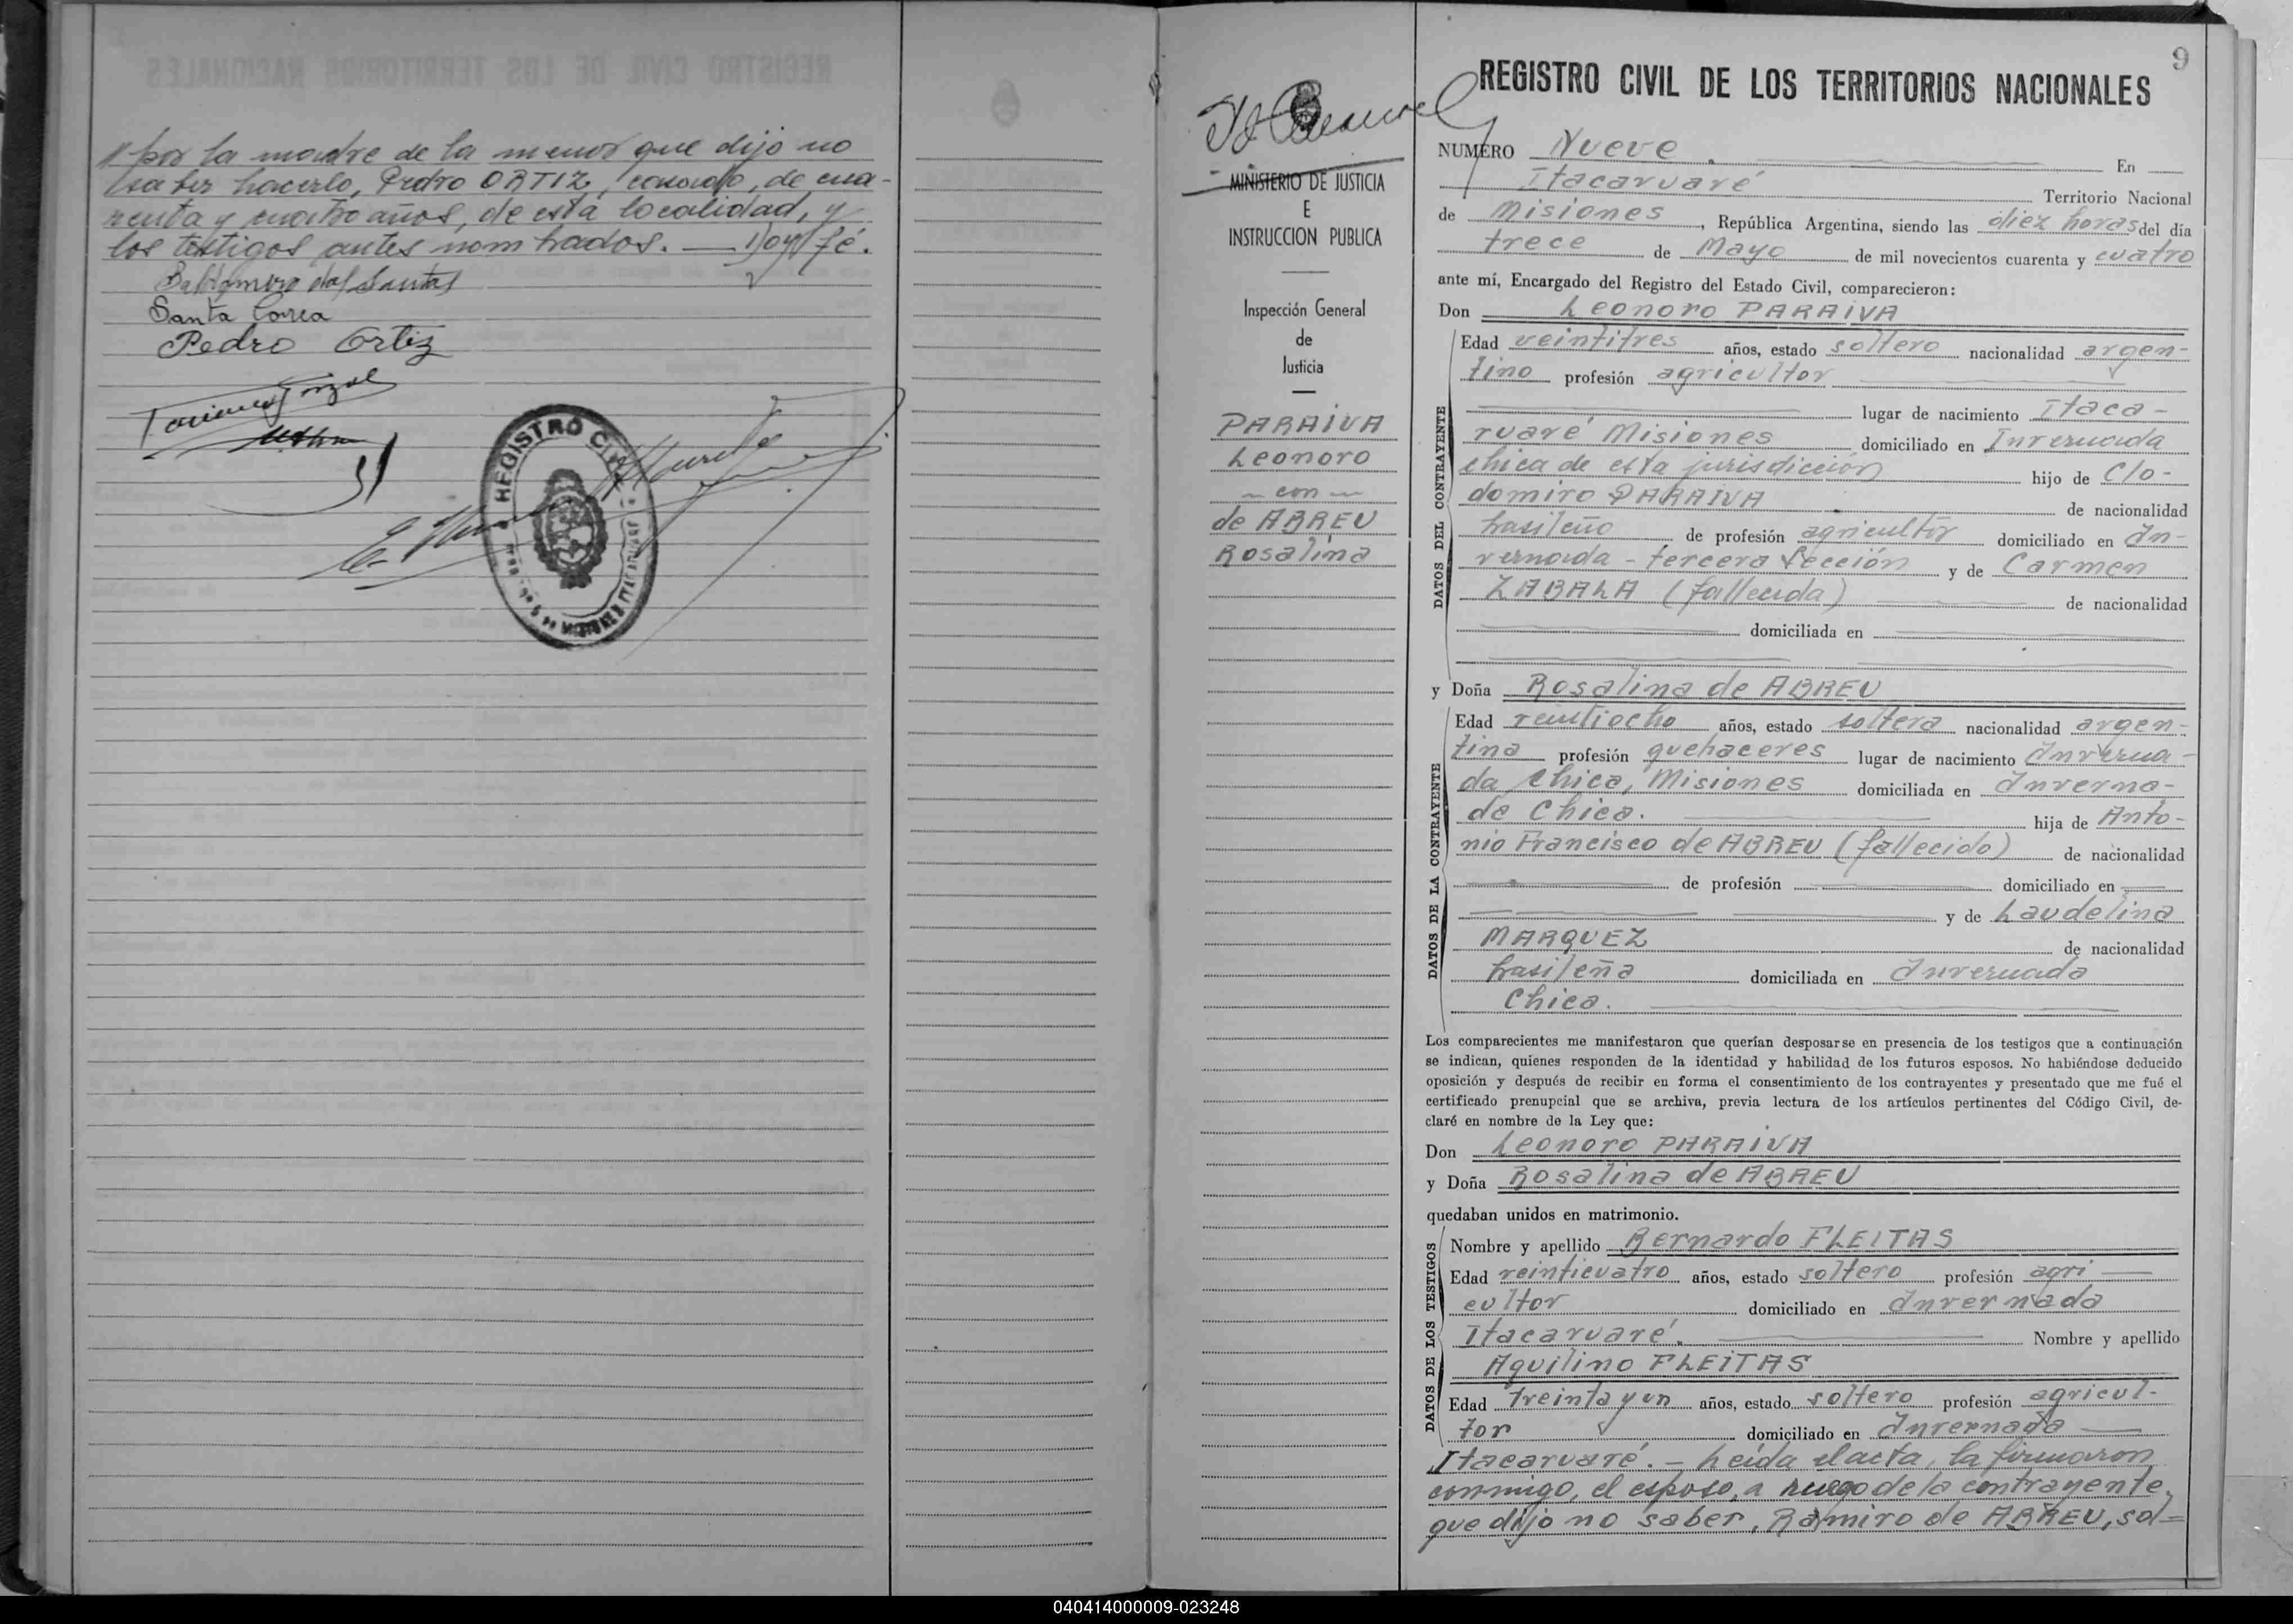 por la madre de la menor que dijo no
saber hacerlo, Pedro ORTIZ, casado, de cua-
renta y cuatro años, de esta localidad, y
los testigos antes nombrados. — Doy fé.
Baldomero dos Santos
Santa Correa
Pedro Ortiz
REGISTRO CIVIL
9
REGISTRO CIVIL DE LOS TERRITORIOS NACIONALES
MINISTERIO DE JUSTICIA
E
INSTRUCCION PUBLICA
Inspección General
de
Justicia
PARAIVA
Leonoro
— con —
de ABREU
Rosalina
NUMERO Nueve. En
Itacaruaré Territorio Nacional
de Misiones, República Argentina, siendo las diez horas del día
trece de Mayo de mil novecientos cuarenta y cuatro
ante mí, Encargado del Registro del Estado Civil, comparecieron:
Don Leonoro PARAIVA
DATOS DEL CONTRAYENTE
Edad veintitres años, estado soltero nacionalidad argen-
tino profesión agricultor
lugar de nacimiento Itaca-
ruaré Misiones domiciliado en Invernada
chica de esta jurisdicción hijo de Clo-
domiro PARAIVA de nacionalidad
brasileño de profesión agricultor domiciliado en In-
vernada - tercera Sección y de Carmen
ZABALA (fallecida) de nacionalidad
domiciliada en
y Doña Rosalina de ABREU
DATOS DE LA CONTRAYENTE
Edad veintiocho años, estado soltera nacionalidad argen-
tina profesión quehaceres lugar de nacimiento Inverna-
da Chica, Misiones domiciliada en Inverna-
da Chica. hija de Anto-
nio Francisco de ABREU (fallecido) de nacionalidad
de profesión domiciliado en
y de Laudelina
MARQUEZ de nacionalidad
brasileña domiciliada en Invernada
Chica.
Los comparecientes me manifestaron que querían desposarse en presencia de los testigos que a continuación
se indican, quienes responden de la identidad y habilidad de los futuros esposos. No habiéndose deducido
oposición y después de recibir en forma el consentimiento de los contrayentes y presentado que me fué el
certificado prenupcial que se archiva, previa lectura de los artículos pertinentes del Código Civil, de-
claré en nombre de la Ley que:
Don Leonoro PARAIVA
y Doña Rosalina de ABREU
quedaban unidos en matrimonio.
DATOS DE LOS TESTIGOS
Nombre y apellido Bernardo FLEITAS
Edad veinticuatro años, estado soltero profesión agri
cultor domiciliado en Invernada
Itacaruaré. Nombre y apellido
Aquilino FLEITAS
Edad treinta y un años, estado soltero profesión agricul-
tor domiciliado en Invernada
Itacaruaré. - Leída el acta, la firmaron
conmigo, el esposo, a ruego de la contrayente
que dijo no saber, Ramiro de ABREU, sol=
040414000009-023248